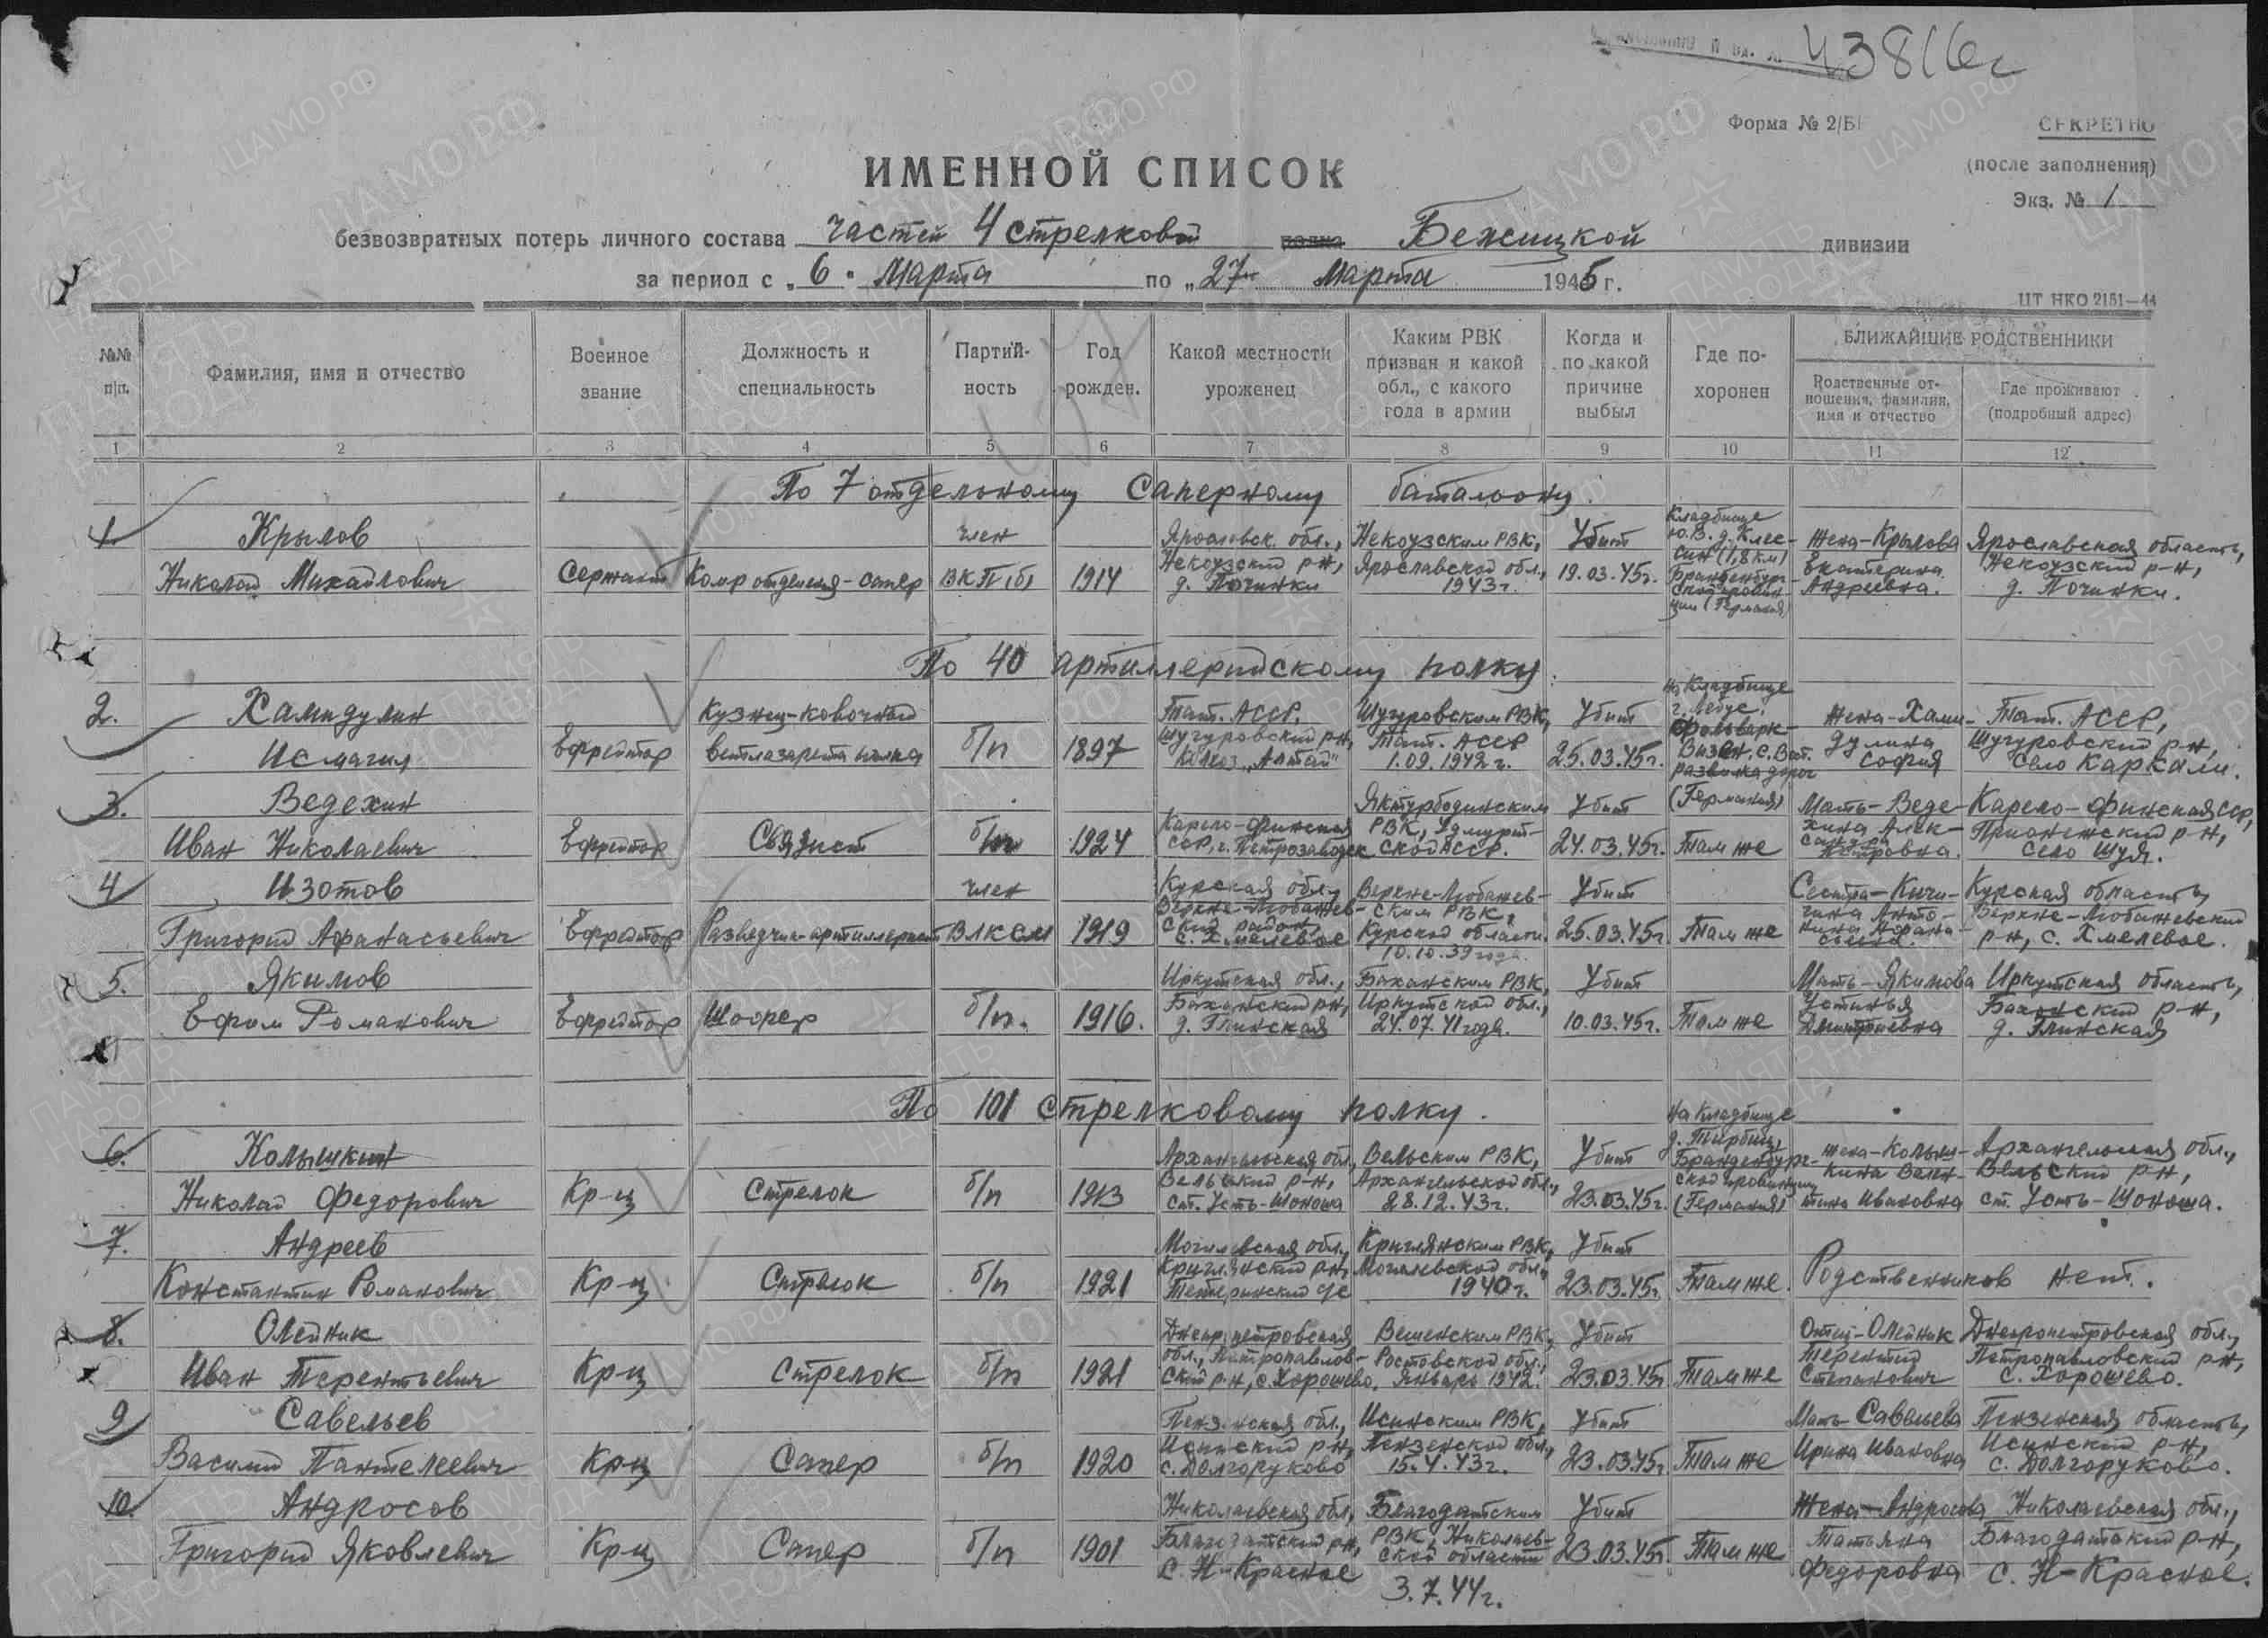 43816с
Форма № 2/Б
СЕКРЕТНО
(после заполнения)
Экз. № 1
ИМЕННОЙ СПИСОК
безвозвратных потерь личного состава частей 4 стрелковой полка Бежицкой дивизии
за период с „6" Марта по „27" Марта 1945 г.
ЦТ НКО 2151—44
№№ п/п.
Фамилия, имя и отчество
Военное звание
Должность и специальность
Партий-ность
Год рожден.
Какой местности уроженец
Каким РВК призван и какой обл., с какого года в армии
Когда и по какой причине выбыл
Где по-хоронен
БЛИЖАЙШИЕ РОДСТВЕННИКИ
Родственные от-ношения, фамилия, имя и отчество
Где проживают (подробный адрес)
1 2 3 4 5 6 7 8 9 10 11 12
По 7 отдельному Саперному батальону.
1. Крылов Николай Михайлович
Сержант
Комр отделения-сапер
член ВКП(б)
1914
Яросл��вск. обл., Некоузский р-н, д. Починки
Некоузским РВК, Ярославской обл., 1943г.
Убит 19.03.45г.
Кладбище Ю.В. д. Клес-син (1,8 км) Бранденбург-ской провин-ции (Германия)
Жена-Крылова Екатерина Андреевна.
Ярославская область, Некоузский р-н, д. Починки.
По 40 артиллерийскому полку:
2. Хамидулин Исмагил
Ефрейтор
Кузнец-ковочный ветлазарета полка
б/п
1897
Тат. АССР, Шугуровский рн, колхоз „Алтай"
Шугуровским РВК, Тат. АССР 1.09.1942г.
Убит 25.03.45г.
На Кладбище г. Лебус, фольварк- с. Вост. развилка дорог (Германия)
Жена-Хами-дулина София
Тат. АССР, Шугуровский р-н, село Каркали.
3. Ведехин Иван Николаевич
Ефрейтор
Связист
б/п
1924
Карело-Финская ССР, г. Петрозаводск
РВК, Удмурт-ской АССР.
Убит 24.03.45г.
Там же
Мать-Веде-хина Алек-сандра Петровна.
Карело-Финская ССР, Прионежский р-н, село Шуя.
4 Изотов Григорий Афанасьевич
Ефрейтор
Разведчик-артиллерист
член ВЛКСМ
1919
Курская обл., Верхне-Любажев-ский район, с. Хмелевое
Верхне-Любажев-ским РВК, Курской области. 10.10.39 года.
Убит 25.03.45г.
Там же
Сестра-Кичи-гина Анто-нина Афана-сьевна.
Курская область, Верхне-Любажевский р-н, с. Хмелевое.
5. Якимов Ефим Романович
Ефрейтор
Шофер
б/п.
1916.
Иркутская обл., Боханский рн, д. Глинская
Боханским РВК, Иркутской обл., 24.07.41 года.
Убит 10.03.45г.
Там же
Мать-Якимова Устинья Дмитриевна
Иркутская область, Боханский р-н, д. Глинская
По 101 стрелковому полку.
6. Колышкин Николай Федорович
Кр-ц
Стрелок
б/п
1913
Архангельская обл., Вельский р-н, ст. Усть-Шоноша
Вельским РВК, Архангельской обл., 28.12.43г.
Убит 23.03.45г.
На кладбище Бранденбург-ской провинции (Германия)
Жена-Колыш-кина Вален-тина Ивановна
Архангельская обл., Вельский р-н, ст. Усть-Шоноша.
7. Андреев Константин Романович
Кр-ц
Стрелок
б/п
1921
Могилевская обл., Круглянский рн, Тетеринский с/с
Круглянским РВК, Могилевской обл., 1940г.
Убит 23.03.45г.
Там же.
Родственников нет.
8. Олейник Иван Терентьевич
Кр-ц
Стрелок
б/п
1921
Днепропетровская обл., Петропавлов-ский р-н, с. Хорошево.
Вешенским РВК, Ростовской обл., Январь 1942.
Убит 23.03.45г.
Там же
Отец-Олейник Терентий Степанович
Днепропетровская обл., Петропавловский рн, с. Хорошево.
9 Савельев Василий Пантелеевич
Кр-ц
Сапер
б/п
1920
Пензенская обл., Исинский р-н, с. Долгоруково
Исинским РВК, Пензенской обл., 15.4.43г.
Убит 23.03.45г.
Там же
Мать-Савельева Ирина Ивановна
Пензенская область, Исинский р-н, с. Долгоруково.
10. Андросов Григорий Яковлевич
Кр-ц
Сапер
б/п
1901
Николаевская обл., Благодатский рн, с. Н-Красное
Благодатским РВК, Николаев-ской области 3.7.44г.
Убит 23.03.45г.
Там же
Жена-Андросова Татьяна Федоровна
Николаевская обл., Благодатский р-н, с. Н-Красное.
ЦАМО РФ
ПАМЯТЬ НАРОДА